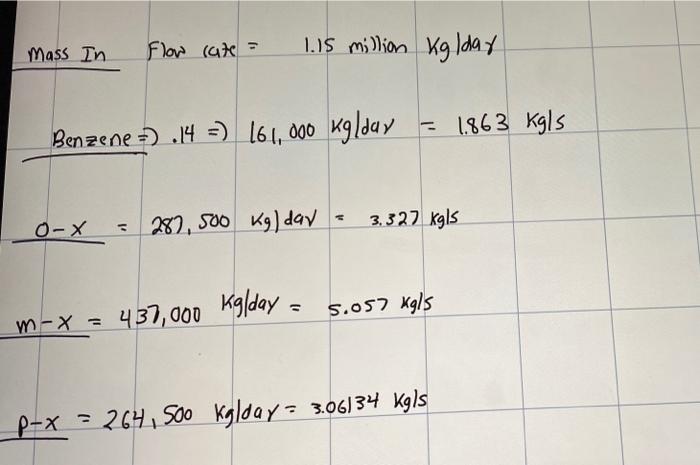 Mass In Flow rate = 1.15 million Kg/day
Benzene => .14 => 161,000 Kg/day = 1.863 Kg/s
O-X = 287,500 Kg/day = 3.327 Kg/s
m-X = 437,000 Kg/day = 5.057 Kg/s
p-X = 264,500 Kg/day = 3.06134 Kg/s